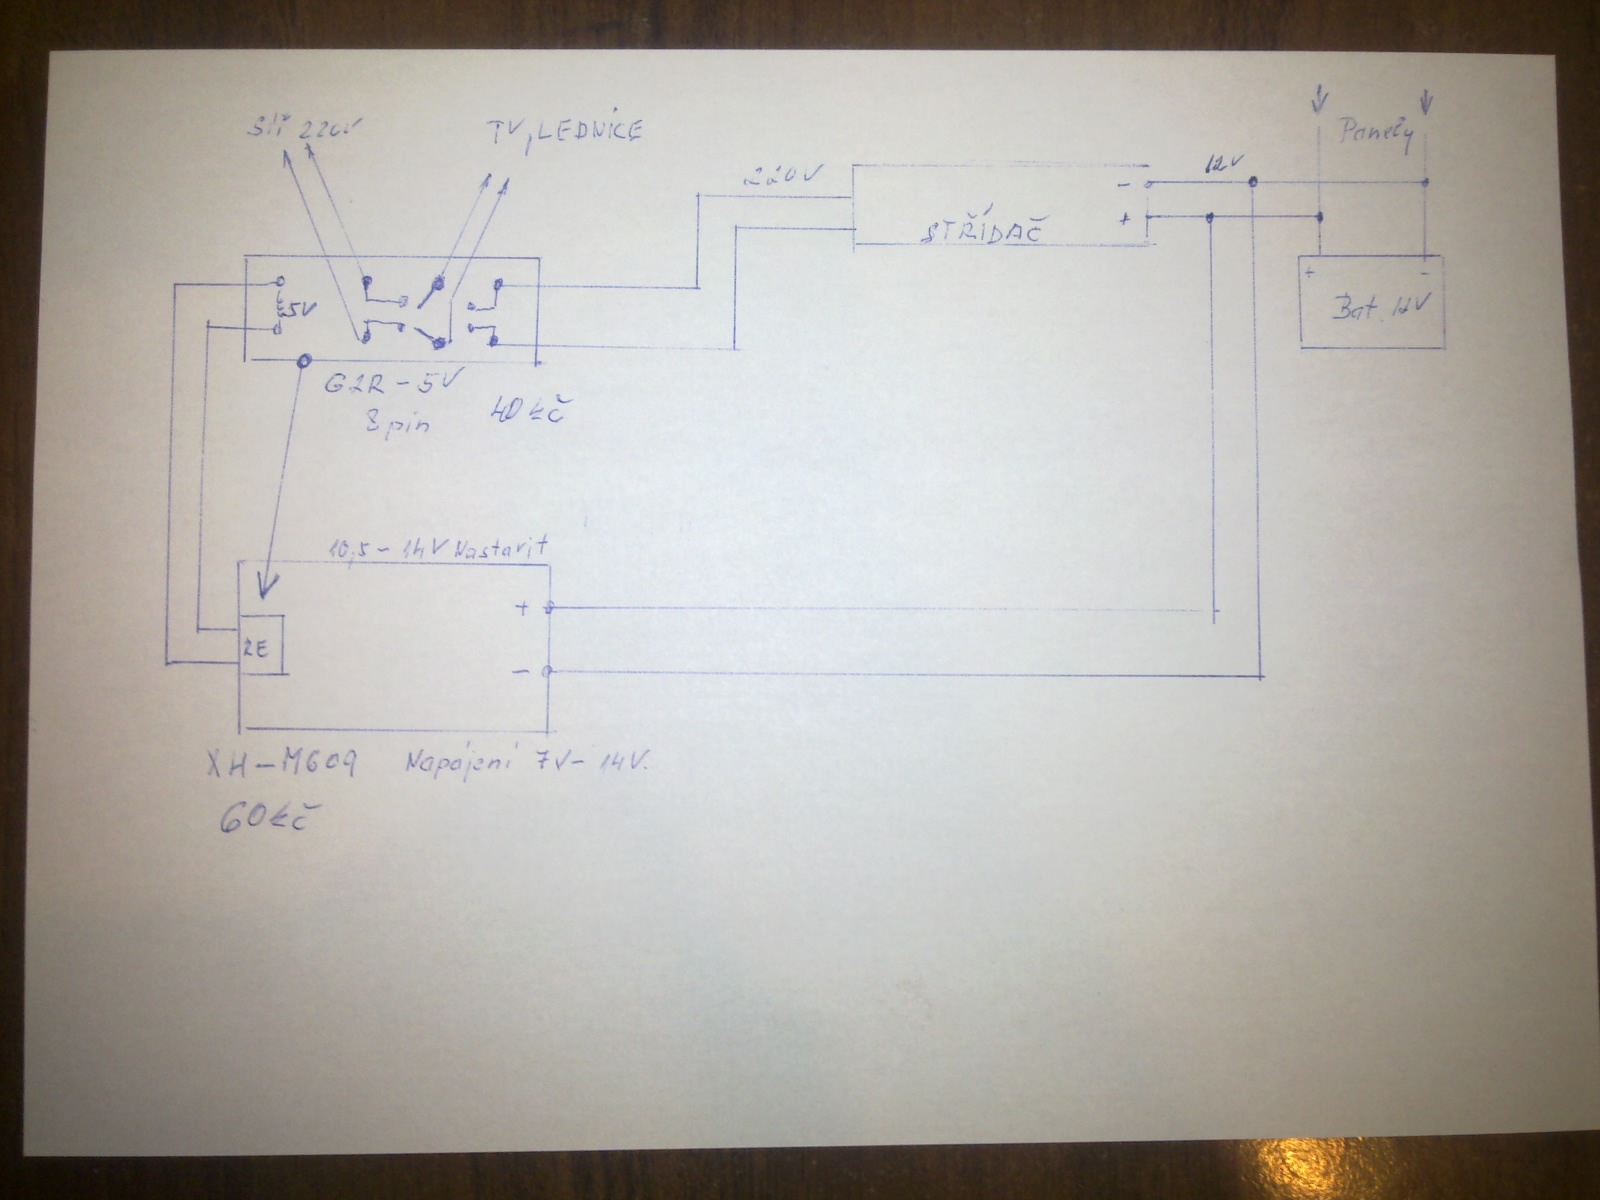 Síť 220V
TV, LEDNICE
Panely
220V
12V
-
+
STŘÍDAČ
+ -
Bat. 12V
5V
G2R-5V
8 pin
40kč
10,5-14V Nastavit
+
RE
-
XH-M609 Napájení 7V-14V.
60kč